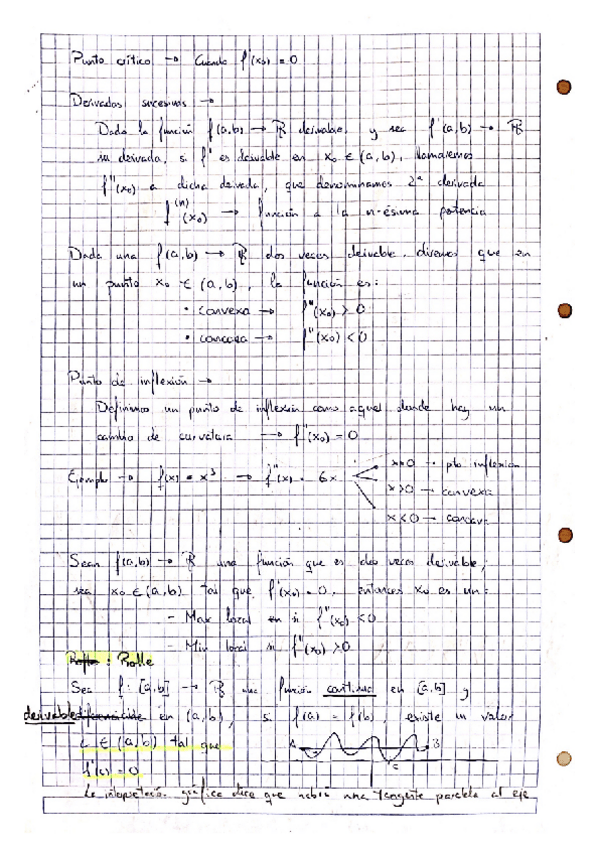 Punto crítico → Cuando f'(x₀) = 0
Derivadas sucesivas →
Dada la función f(a,b) → ℝ derivable, y sea f'(a,b) → ℝ
su derivada, si f' es derivable en x₀ ∈ (a,b), llamaremos
f''(x₀) a dicha derivada, que denominamos 2ª derivada
f⁽ⁿ⁾(x₀) → función a la n-ésima potencia
Dada una f(a,b) → ℝ dos veces derivable, diremos que en
un punto x₀ ∈ (a,b), la función es:
• convexa → f''(x₀) > 0
• concava → f''(x₀) < 0
Punto de inflexión →
Definimos un punto de inflexión como aquel donde hay un
cambio de curvatura → f''(x₀) = 0
Ejemplo → f(x) = x³ → f''(x) = 6x
x=0 → pto inflexion
x>0 → convexa
x<0 → concava
Sean f(a,b) → ℝ una función que es dos veces derivable,
sea x₀ ∈ (a,b) tal que f'(x₀) = 0, entonces x₀ es un:
- Max local en si f''(x₀) < 0
- Min local si f''(x₀) > 0
: Rolle
Sea f: [a,b] → ℝ una función continua en [a,b] y
derivable diferenciable en (a,b), si f(a) = f(b), existe un valor
c ∈ (a,b) tal que
A B
c
f'(c) = 0
La interpretación gráfica dice que habrá una tangente paralela al eje